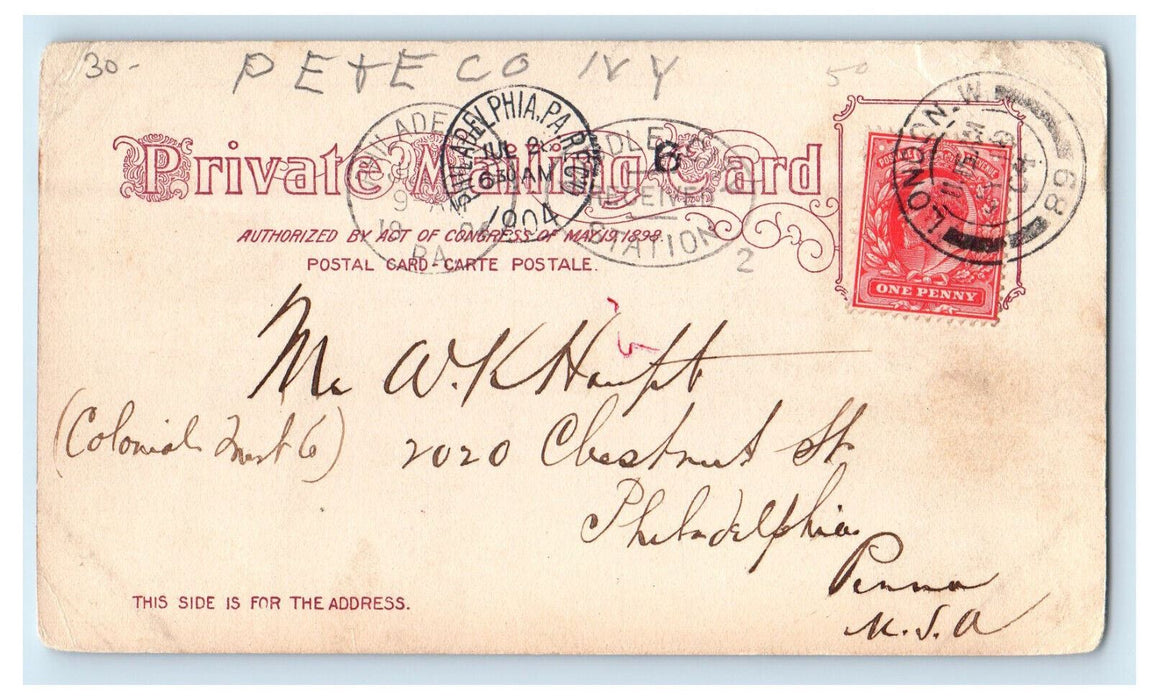 30-
PETE CO NY
50
Private Mailing Card
AUTHORIZED BY ACT OF CONGRESS OF MAY 19, 1898.
POSTAL CARD-CARTE POSTALE.
PHILADELPHIA, PA.
JUL 28
6 30 AM
1904
6
RECEIVED
STATION
2
9 AM
PA
LONDON. W.
89
ONE PENNY
W. K. Haupt
(Colonial Trust Co)
2020 Chestnut St.
Philadelphia
Penna
U.S.A
THIS SIDE IS FOR THE ADDRESS.